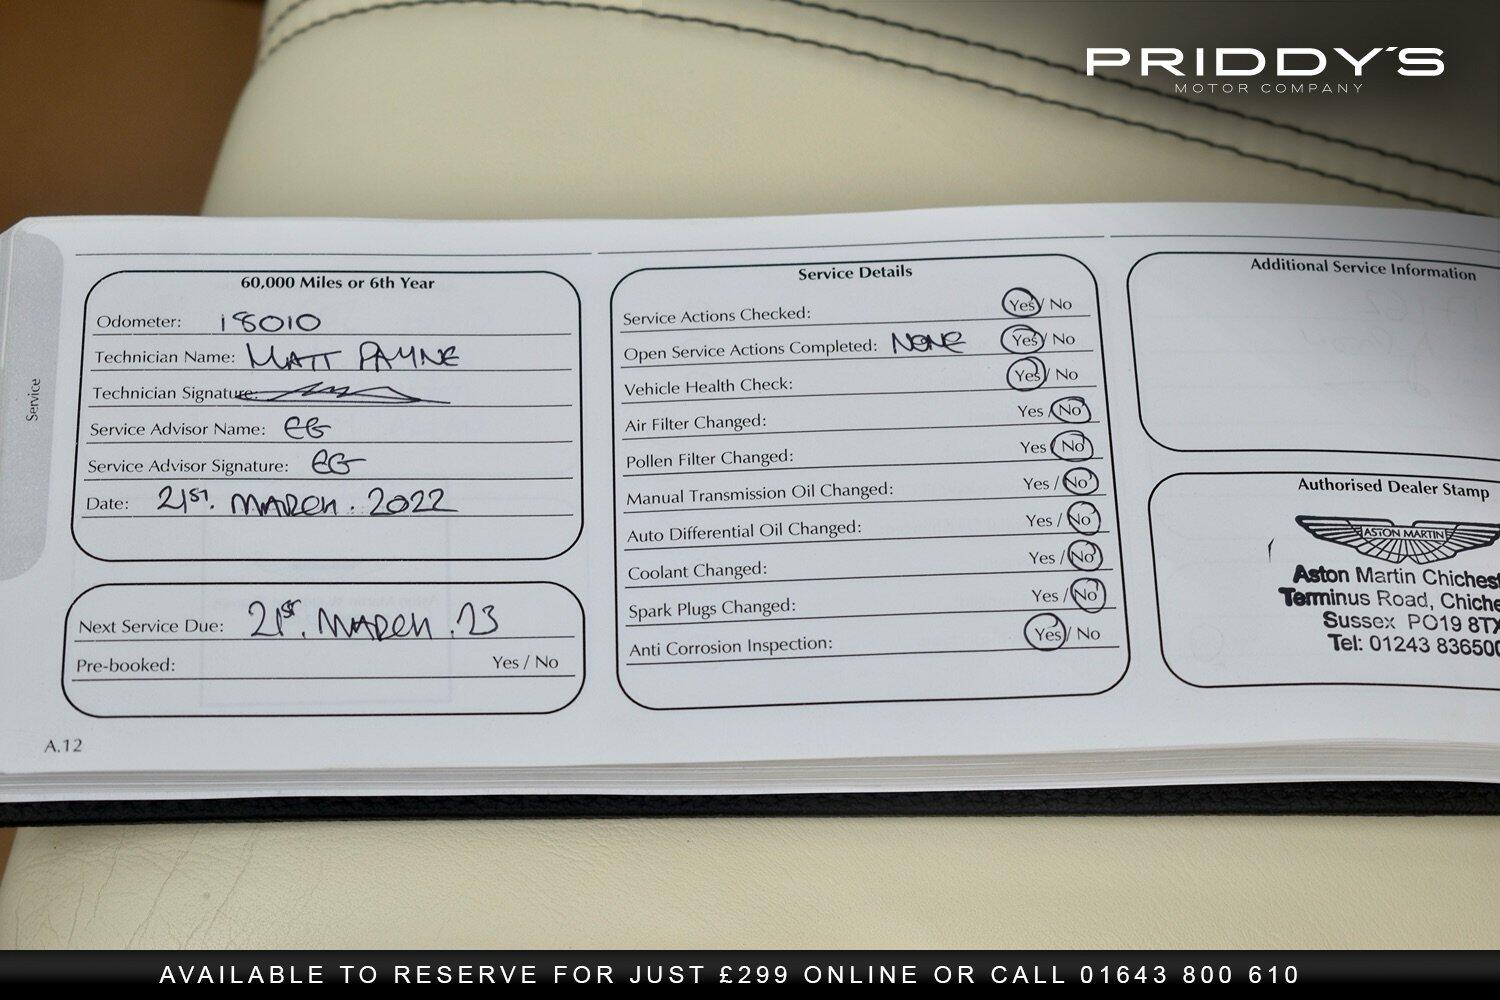 PRIDDY'S
MOTOR COMPANY
60,000 Miles or 6th Year
Odometer: 18010
Technician Name: MATT PAYNE
Technician Signature:
Service Advisor Name: EG
Service Advisor Signature: EG
Date: 21ST. MARCH. 2022
Next Service Due: 21ST. MARCH. 23
Pre-booked: Yes / No
Service
A.12
Service Details
Service Actions Checked: Yes / No
Open Service Actions Completed: NONE Yes / No
Vehicle Health Check: Yes / No
Air Filter Changed: Yes / No
Pollen Filter Changed: Yes / No
Manual Transmission Oil Changed: Yes / No
Auto Differential Oil Changed: Yes / No
Coolant Changed: Yes / No
Spark Plugs Changed: Yes / No
Anti Corrosion Inspection: Yes / No
Additional Service Information
Authorised Dealer Stamp
ASTON MARTIN
Aston Martin Chichest
Terminus Road, Chiche
Sussex PO19 8TX
Tel: 01243 836500
AVAILABLE TO RESERVE FOR JUST £299 ONLINE OR CALL 01643 800 610